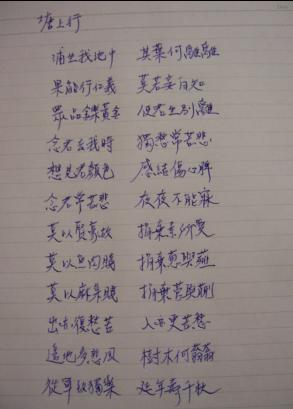 塘上行
蒲生我池中 其葉何離離
果能行仁義 莫若妾自知
眾品鑠黃金 使君生別離
念君去我時 獨愁常苦悲
想見君顏色 感結傷心脾
念君常苦悲 夜夜不能寐
莫以賢豪故 捐棄素所愛
莫以魚肉賤 捐棄蔥與薤
莫以麻枲賤 捐棄菅與蒯
出亦復愁苦 入亦更苦愁
邊地多悲風 樹木何翕翕
從軍致獨樂 延年壽千秋